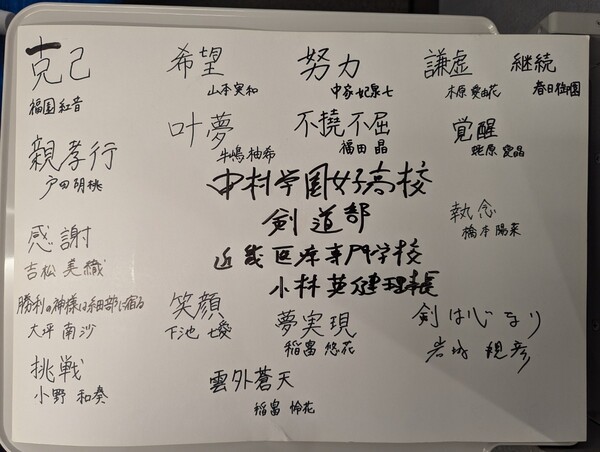 克己
福園 紅音
希望
山本 実和
努力
中家 妃泉七
謙虚
木原 愛由花
継続
春日 御園
親孝行
戸田 胡桃
叶夢
牛嶋 柚希
不撓不屈
福田 晶
覚醒
蛯原 愛晶
中村学園女子高校
剣道部
近畿医療専門学校
小林 英健理事長
執念
橋本 陽菜
感謝
吉松 美織
勝利の神様は細部に宿る
大平 南沙
笑顔
下池 七愛
夢実現
稲富 悠花
剣は心なり
岩城 規彦
挑戦
小野 和奏
雲外蒼天
稲富 怜花